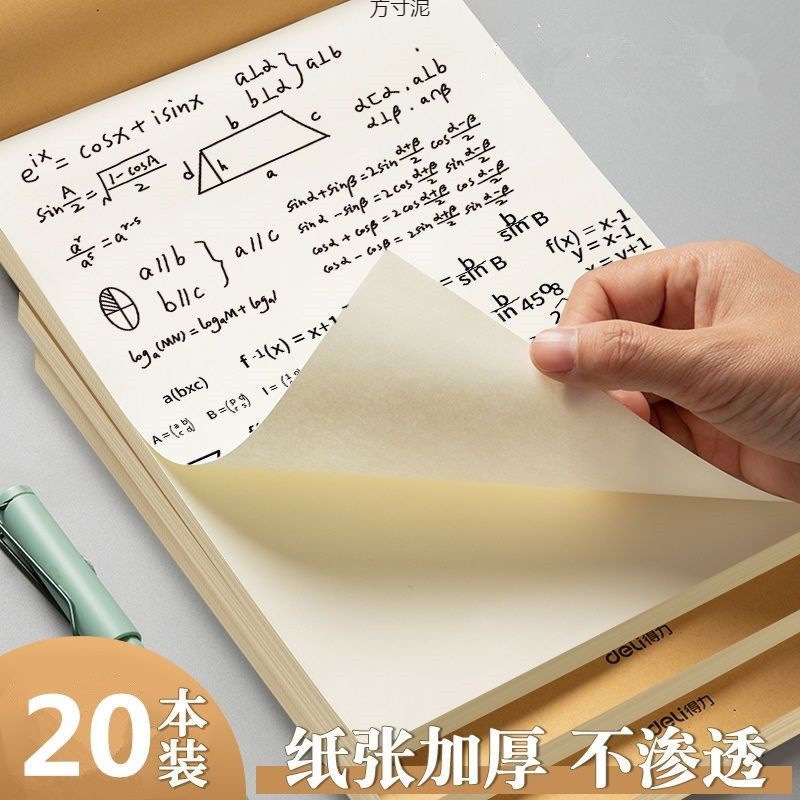 方寸泥
e^ix = cosx + isinx
a⊥α
b⊥α
a⊥b
α⊏α . a⊥b
α⊥β . a∩β
b
c
d
h
a
sin A/2 = √(1-cosA/2)
a^r/a^s = a^r-s
sinα+sinβ=2sin α+β/2 cos α-β/2
sinα-sinβ=2cos α+β/2 sin α-β/2
cosα+cosβ=2cos α+β/2 cos α-β/2
cosα-cosβ=2sin α+β/2 sin α-β/2
a//b
b//c
a//c
b/sin B
b/sin B
f(x) = x-1
y = x-1
x = y+1
in 45°
log_a(MN) = log_aM + log_a
f^-1(x) = x+1
a(bxc)
A=(a b c d)
B=(p q r s)
deli得力
deli得力
20本装
纸张加厚 不渗透